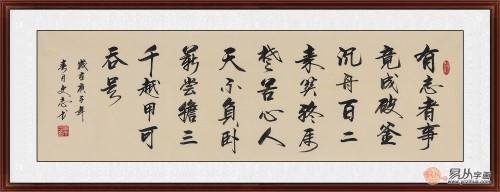 有志者事
竟成破釜
沉舟百二
秦关终属
楚苦心人
天不负卧
薪尝膽三
千越甲可
吞吴
岁在庚子年
春月史志书
易从字画